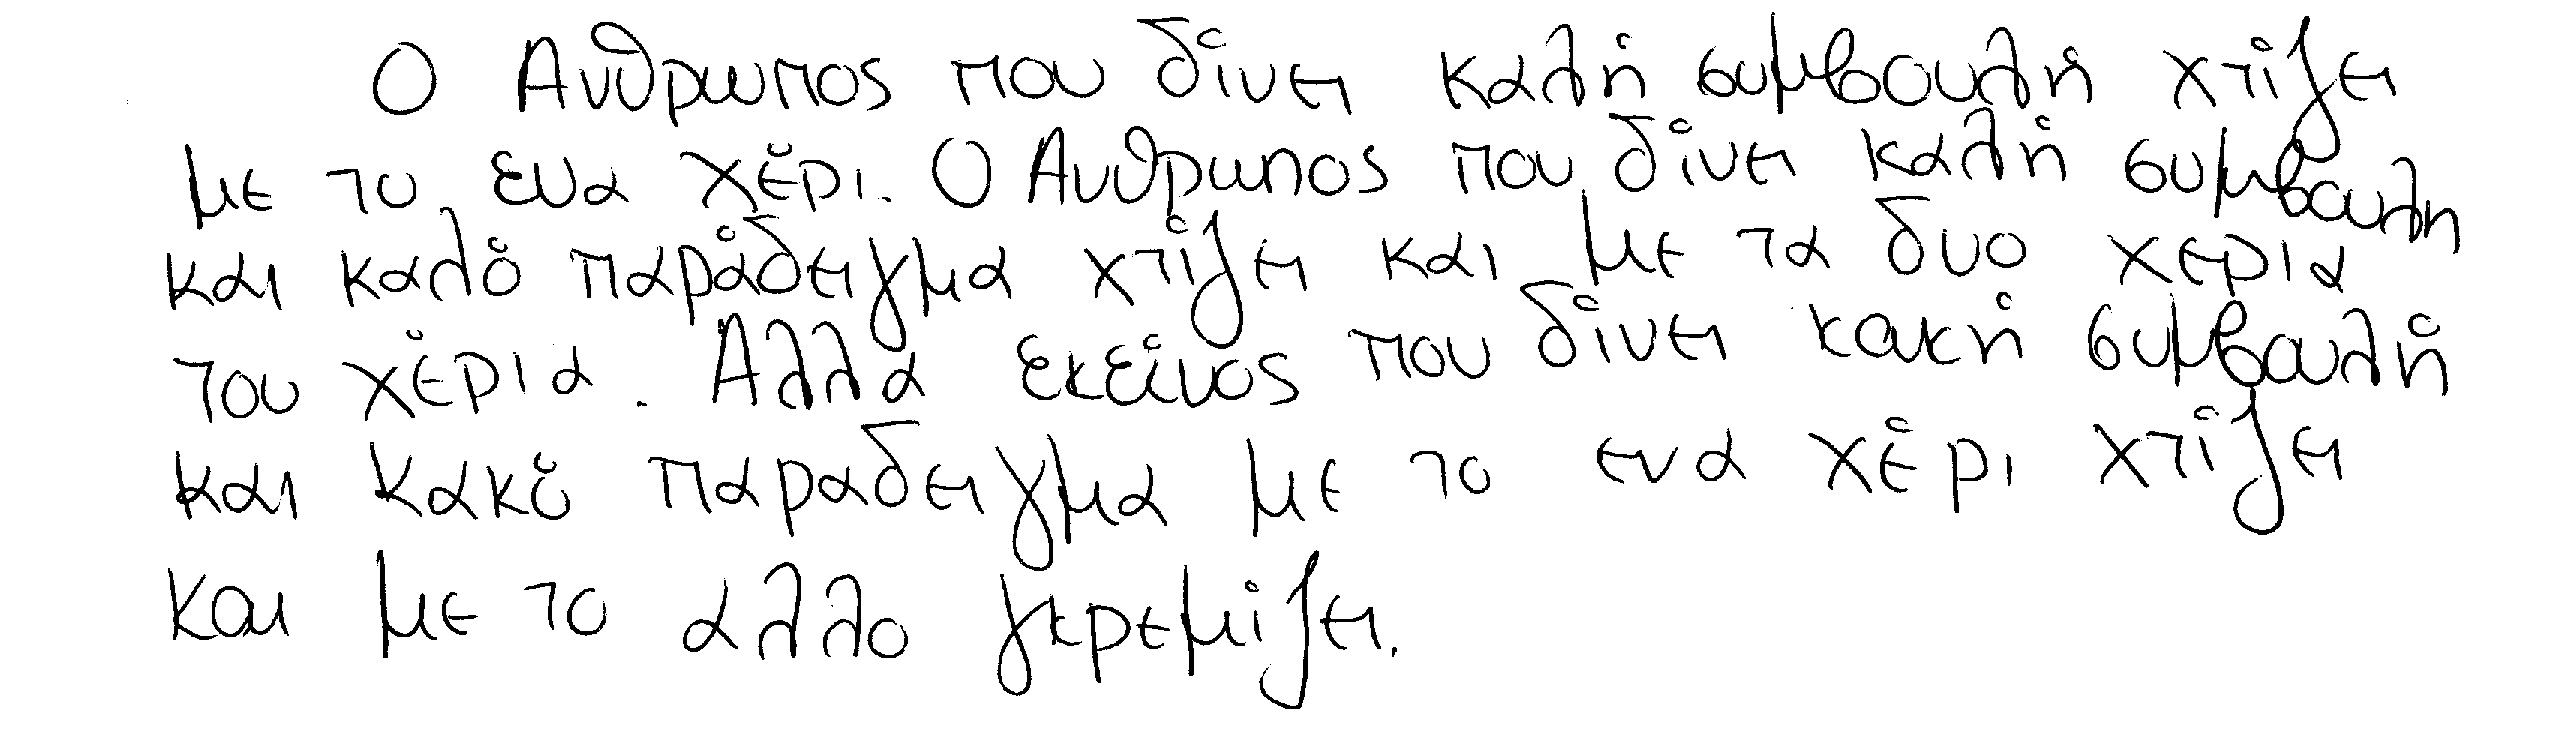 Ο Ανθρωπος που δίνει καλή συμβουλή χτίζει
με το ενα χέρι. Ο Ανθρωπος που δίνει καλή συμβουλη
και καλό παράδειγμα χτίζει και με τα δυο χερια
του χέρια. Αλλα εκείνος που δίνει κακή συμβουλή
και κακό παραδειγμα με το ενα χέρι χτίζει
και με το αλλο γκρεμίζει.